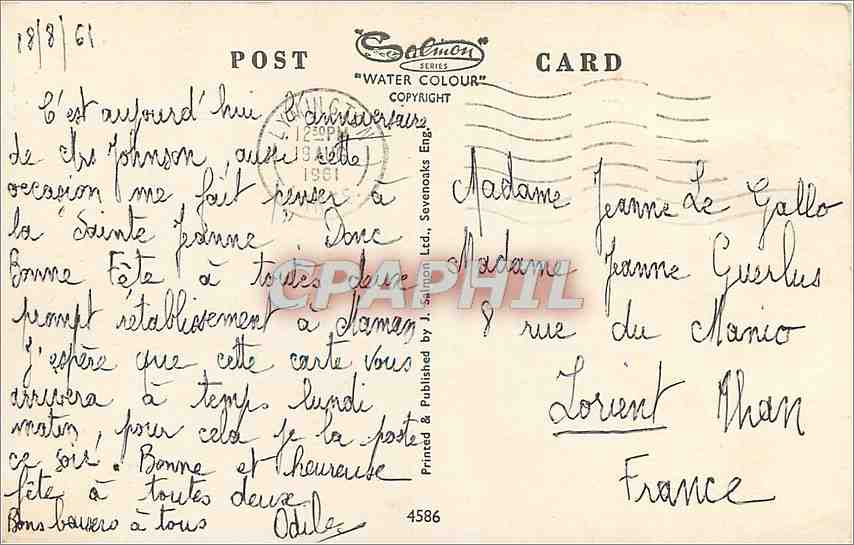 18/8/61
POST CARD
Salmon
SERIES
"WATER COLOUR"
COPYRIGHT
LYMINGTON
12 30 PM
19 AUG
1961
HANTS
C'est aujourd'hui l'anniversaire
de Mrs Johnson, aussi cette
occasion me fait penser à
la Sainte Jeanne. Donc
Bonne Fête à toutes deux
prompt rétablissement à Maman
J'espère que cette carte vous
arrivera à temps lundi
matin, pour cela je la poste
ce soir. Bonne et heureuse
fête à toutes deux
Bons baisers à tous Odile
Printed & Published by J. Salmon Ltd., Sevenoaks Eng.
Madame Jeanne Le Gallo
Madame Jeanne Guerlus
8 rue du Manio
Lorient
France
4586
CPAPHIL